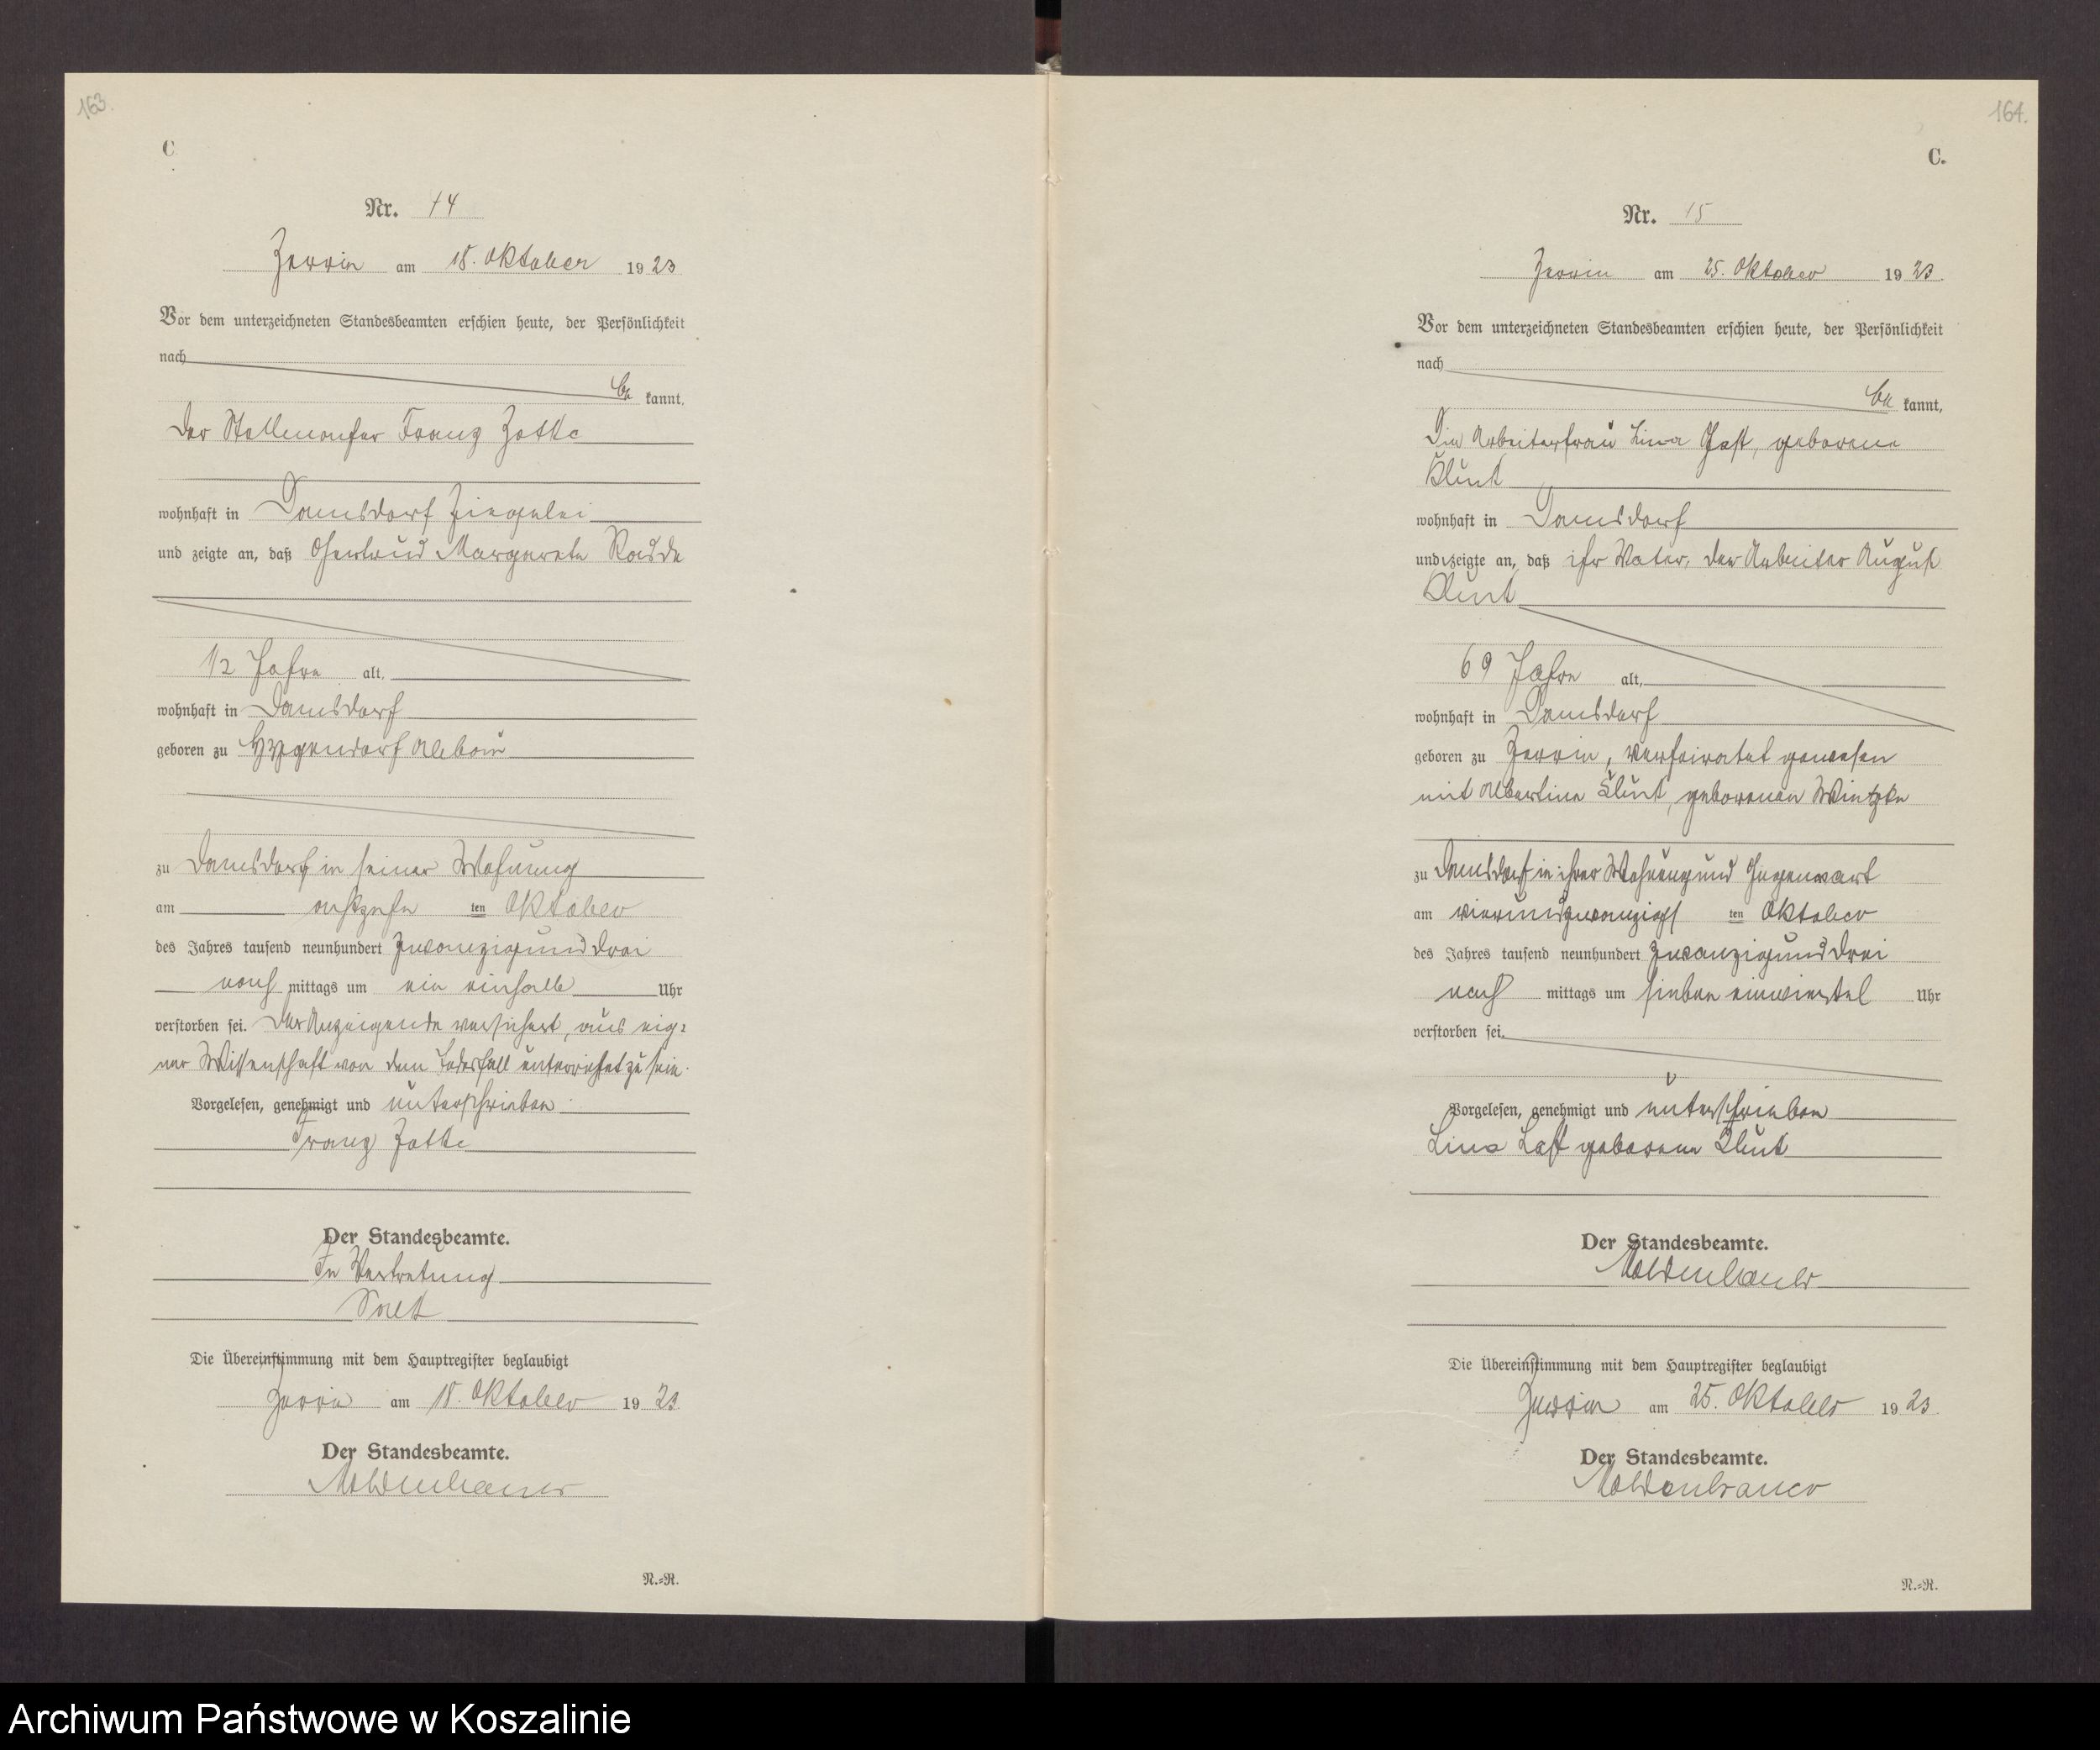 163.
C
Nr. 14
Zerrin am 18. Oktober 1923
Vor dem unterzeichneten Standesbeamten erschien heute, der Persönlichkeit
nach
be kannt,
der Franz Zottke
wohnhaft in Damsdorf Ziegelei
und zeigte an, daß Gertrud Margarete Radde
12 Jahre alt,
wohnhaft in Damsdorf
geboren zu Hygendorf Abbau
zu Damsdorf in seiner Wohnung
am achtzehn ten Oktober
des Jahres tausend neunhundert zwanzigunddrei
nach mittags um ein einhalb Uhr
verstorben sei. Der Anzeigende versichert, aus eig-
ner Wissenschaft von dem Todesfall unterrichtet zu sein.
Vorgelesen, genehmigt und unterschrieben
Franz Zottke
Der Standesbeamte.
In Vertretung
Die Übereinstimmung mit dem Hauptregister beglaubigt
Zerrin am 18. Oktober 1923
Der Standesbeamte.
Moldenhauer
N.=R.
164.
C.
Nr. 15
Zerrin am 25. Oktober 1923.
Vor dem unterzeichneten Standesbeamten erschien heute, der Persönlichkeit
nach
be kannt,
Die Arbeiterfrau Lina geborene
Klunt
wohnhaft in Damsdorf
und zeigte an, daß ihr Vater, der Arbeiter August
Klunt
69 Jahre alt,
wohnhaft in Damsdorf
geboren zu Zerrin, verheiratet gewesen
mit Albertine Klunt, geborenen Wintzke
zu Damsdorf in ihrer Wohnung und Gegenwart
am vierundzwanzigs ten Oktober
des Jahres tausend neunhundert zwanzigunddrei
nach mittags um sieben einviertel Uhr
verstorben sei.
Vorgelesen, genehmigt und unterschrieben
Lina geborene Klunt
Der Standesbeamte.
Moldenhauer
Die Übereinstimmung mit dem Hauptregister beglaubigt
Zerrin am 25. Oktober 1923
Der Standesbeamte.
Moldenhauer
N.=R.
Archiwum Państwowe w Koszalinie